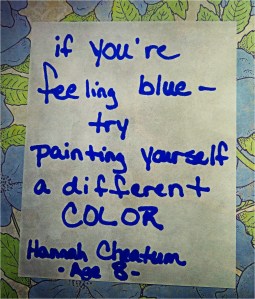 if you're
feeling blue—
try
painting yourself
a different
COLOR
Hannah Cheatum
- Age 8 -